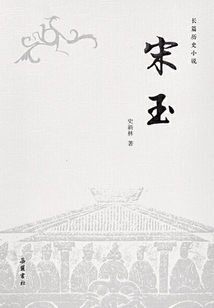 长篇历史小说
宋玉
史新林 著
岳麓书社